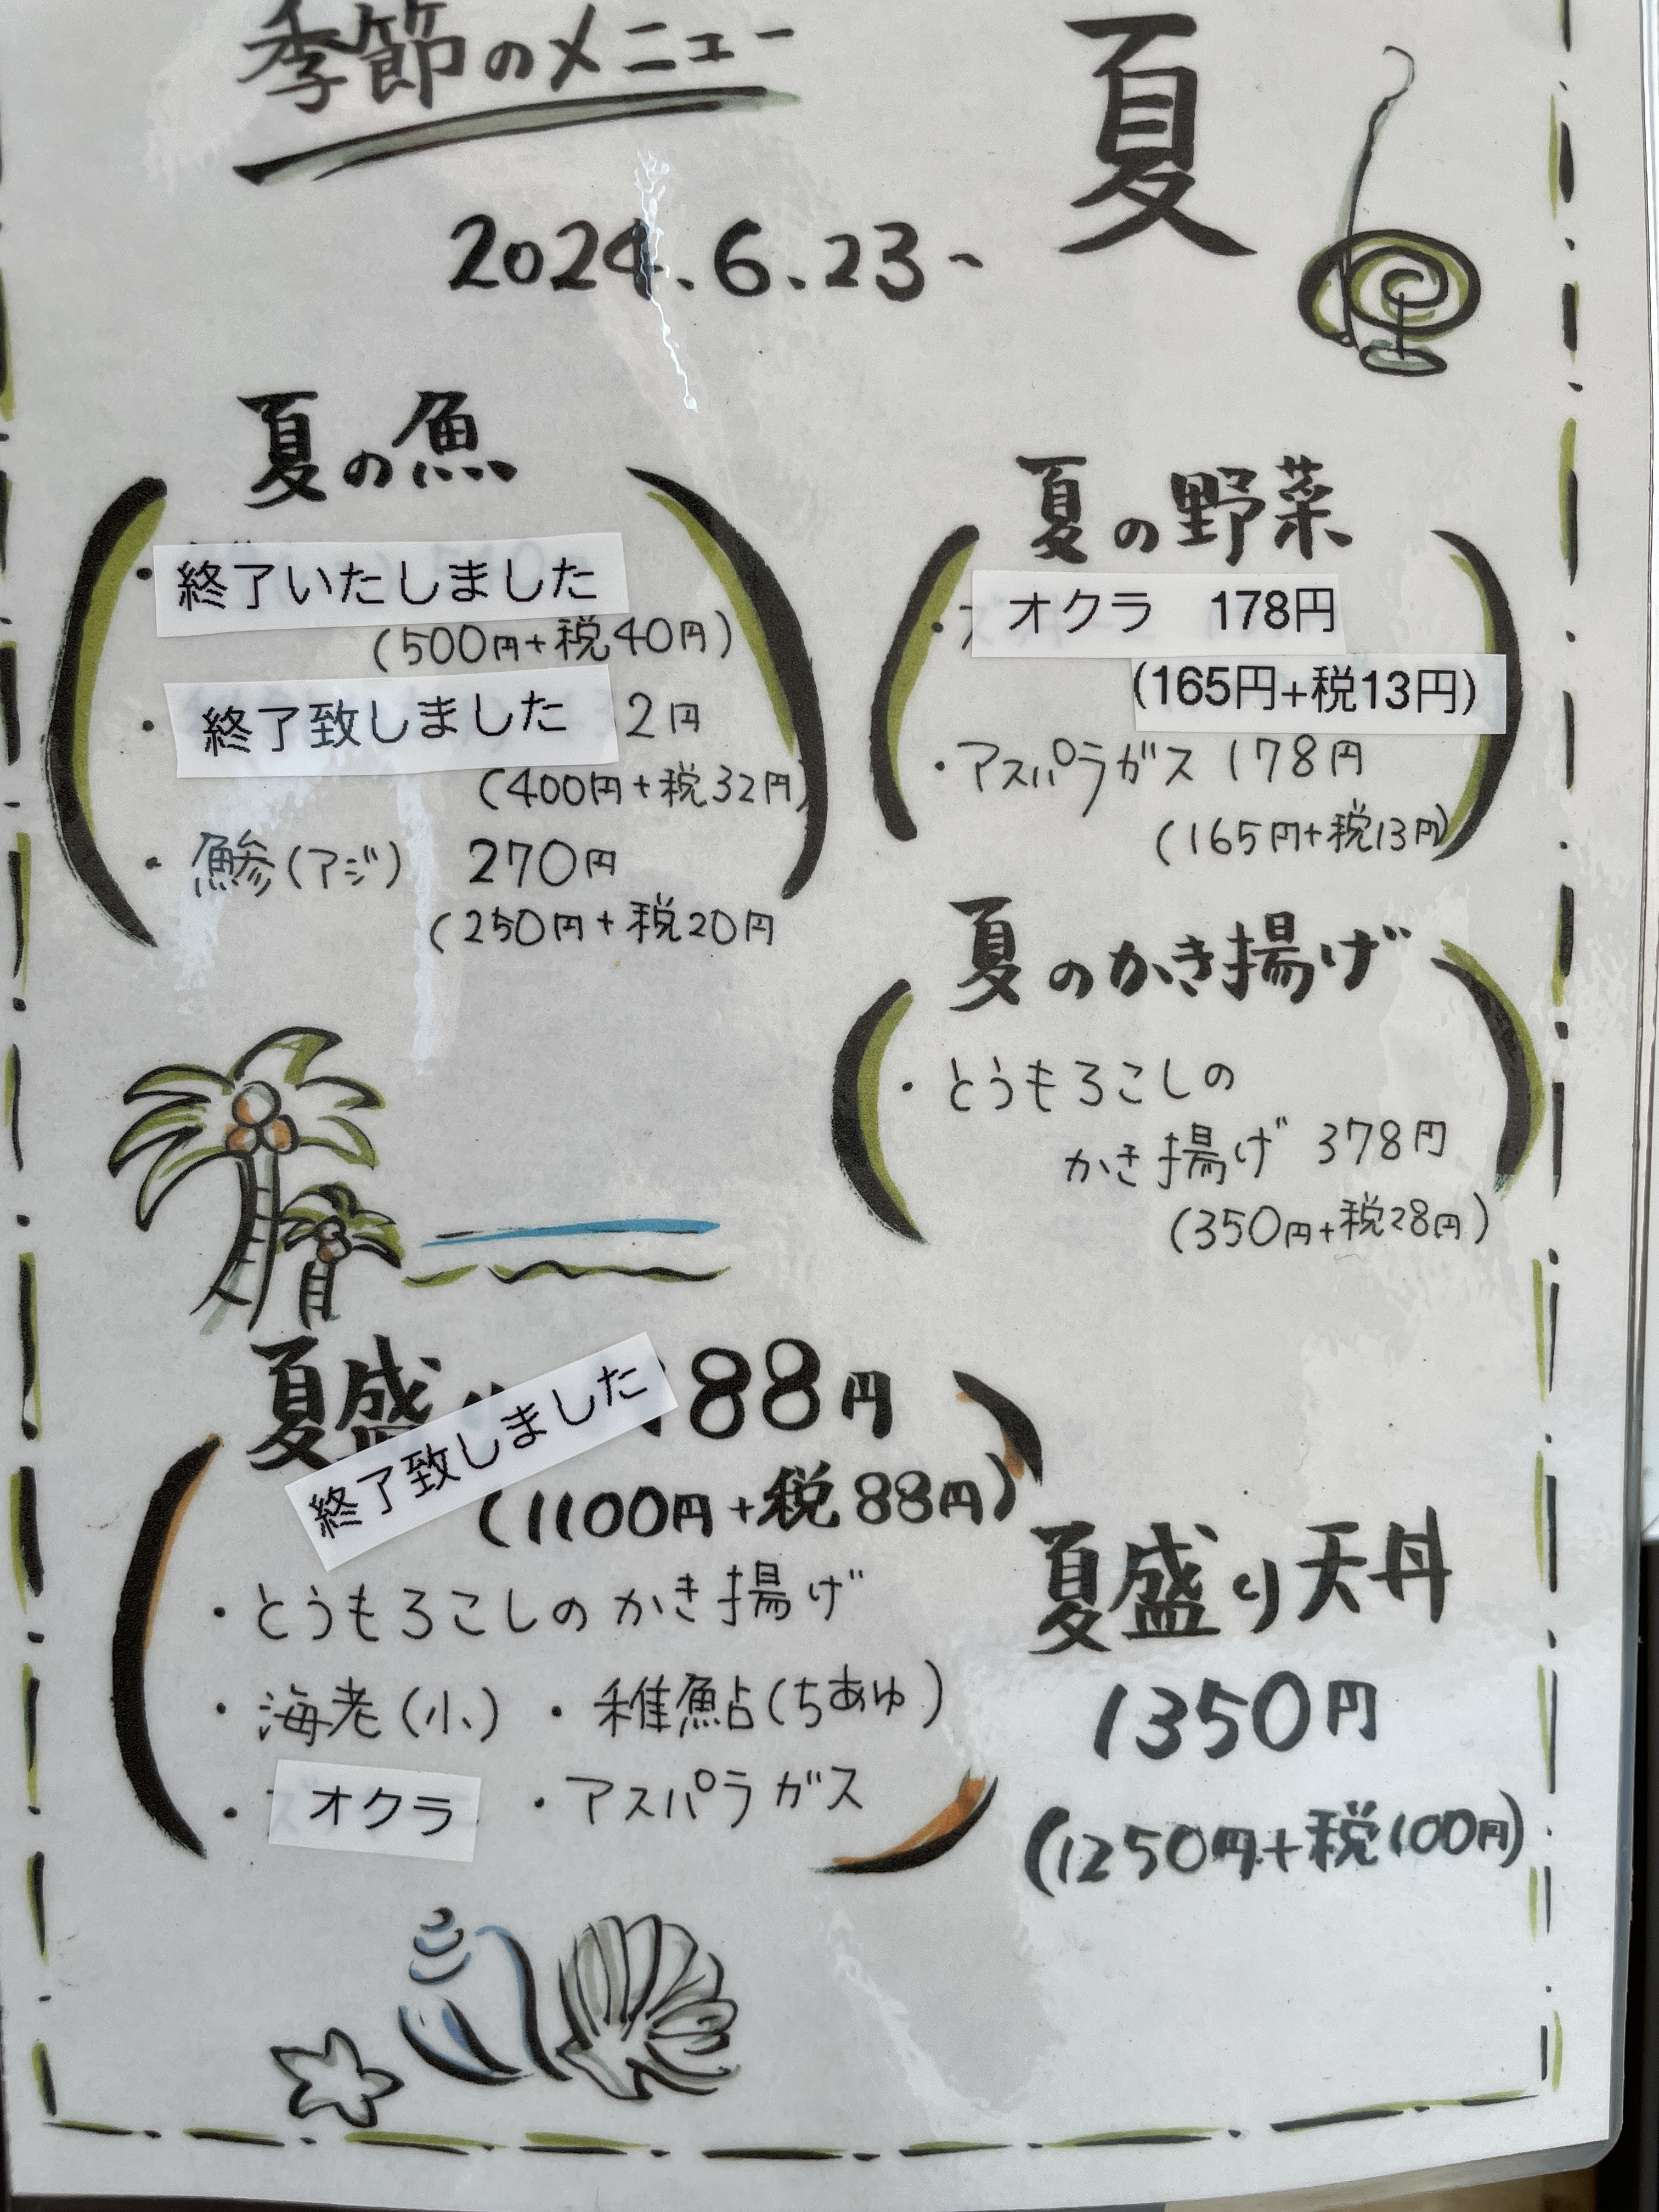 季節のメニュー
夏
2024.6.23~
夏の魚
・終了いたしました
(500円+税40円)
・終了致しました 2円
(400円+税32円)
・鯵(アジ) 270円
(250円+税20円
夏の野菜
・オクラ 178円
(165円+税13円)
・アスパラガス 178円
(165円+税13円)
夏のかき揚げ
・とうもろこしの
かき揚げ 378円
(350円+税28円)
夏盛 188円
終了致しました
(1100円+税88円)
・とうもろこしのかき揚げ
・海老(小) ・稚鮎(ちあゆ)
・オクラ ・アスパラガス
夏盛り天丼
1350円
(1250円+税100円)